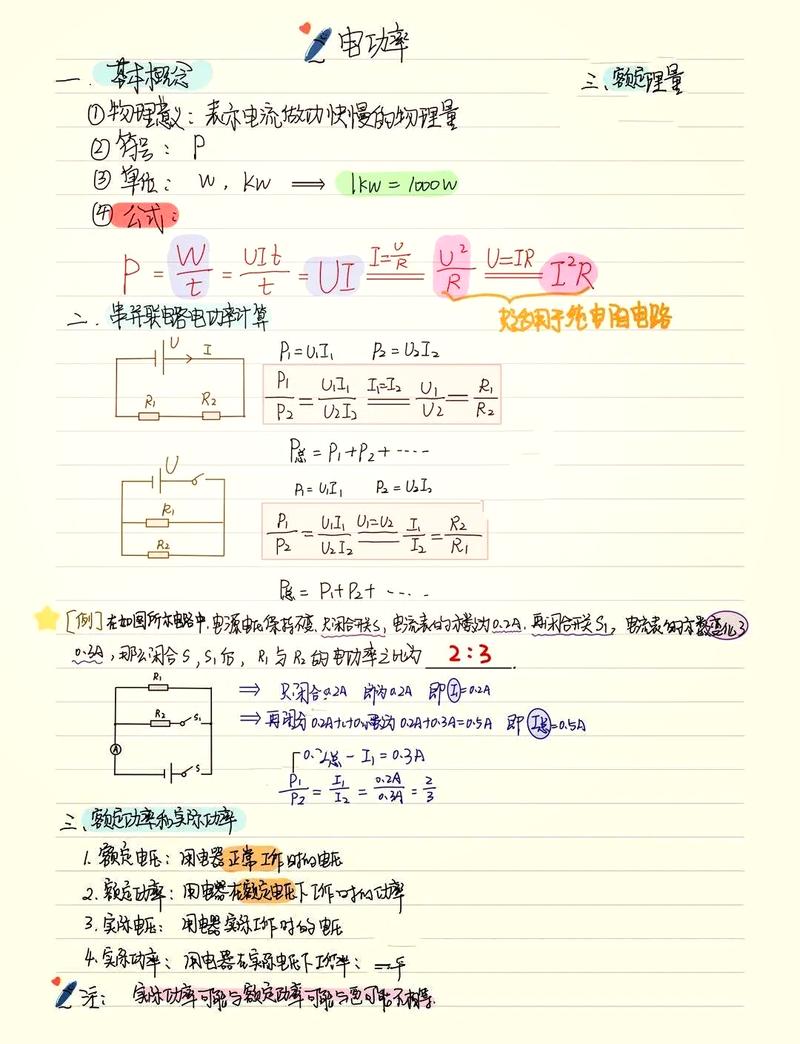 电功率
一. 基本概念
三、额定理量
① 物理意义：表示电流做功快慢的物理量
② 符号： P
③ 单位： W, KW ⟹ 1KW = 1000W
④ 公式：
P = W/t = UIt/t = UI I=U/R U²/R U=IR I²R
用于纯电阻电路
二. 串并联电路电功率计算
U I
R₁ R₂
P₁=U₁I₁ P₂=U₂I₂
P₁/P₂ = U₁I₁/U₂I₂ I₁=I₂ U₁/U₂ = R₁/R₂
P总 = P₁+P₂+ ····
U
R₁
R₂
P₁=U₁I₁ P₂=U₂I₂
P₁/P₂ = U₁I₁/U₂I₂ U₁=U₂ I₁/I₂ = R₂/R₁
P总 = P₁+P₂+ ····
[例] 在如图所示电路中，电源电压保持不变，只闭合开关S，电流表的示数为0.2A，再闭合开关S₁，电流表的示数变化了
0.3A，那么闭合S，S₁后，R₁与R₂的电功率之比为 2:3 .
R₁
R₂ S₁
A S
⟹ 只闭合 0.2A 即为0.2A 即I₁=0.2A
⟹ 再闭合 0.2A 为0.2A+0.3A=0.5A 即I总=0.5A
总 - I₁ = 0.3A
P₁/P₂ = I₁/I₂ = 0.2A/0.3A = 2/3
三. 额定功率和实际功率
1. 额定电压：用电器正常工作时的电压
2. 额定功率：用电器在额定电压下工作时的功率
3. 实际电压：用电器实际工作时的电压
4. 实际功率：用电器在实际电压下工作率：
注： 实际功率可能与额定功率可能与 可能不相等.